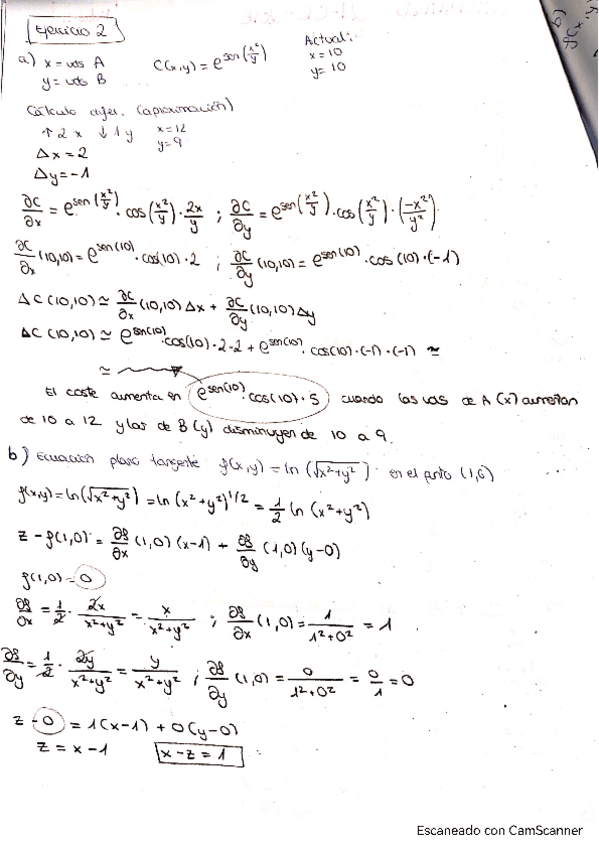 Ejercicio 2
a) x = uds A C(x,y) = e^sen(x²/y) Actual:
y = uds B x = 10
y = 10
Cálculo difer. (aproximación)
↑ 2 x ↓ 1 y x = 12
y = 9
Δx = 2
Δy = -1
∂C/∂x = e^sen(x²/y) · cos(x²/y) · 2x/y ; ∂C/∂y = e^sen(x²/y) · cos(x²/y) · (-x²/y²)
∂C/∂x (10,10) = e^sen(10) · cos(10) · 2 ; ∂C/∂y (10,10) = e^sen(10) · cos(10) · (-1)
ΔC(10,10) ≃ ∂C/∂x (10,10) Δx + ∂C/∂y (10,10) Δy
ΔC(10,10) ≃ e^sen(10) · cos(10) · 2 · 2 + e^sen(10) · cos(10) · (-1) · (-1) ≃
≃
El coste aumenta en e^sen(10) · cos(10) · 5 cuando las uds de A (x) aumentan
de 10 a 12 y las de B (y) disminuyen de 10 a 9.
b) Ecuación plano tangente f(x,y) = ln(√x²+y²) en el punto
f(x,y) = ln(√x²+y²) = ln(x²+y²)^1/2 = 1/2 ln(x²+y²)
z - f(1,0) = ∂f/∂x (1,0) (x-1) + ∂f/∂y (1,0) (y-0)
f(1,0) = 0
∂f/∂x = 1/2 · 2x/x²+y² = x/x²+y² ; ∂f/∂x (1,0) = 1/1²+0² = 1
∂f/∂y = 1/2 · 2y/x²+y² = y/x²+y² ; ∂f/∂y (1,0) = 0/1²+0² = 0/1 = 0
z - 0 = 1(x-1) + 0(y-0)
z = x - 1 x - z = 1
Escaneado con CamScanner